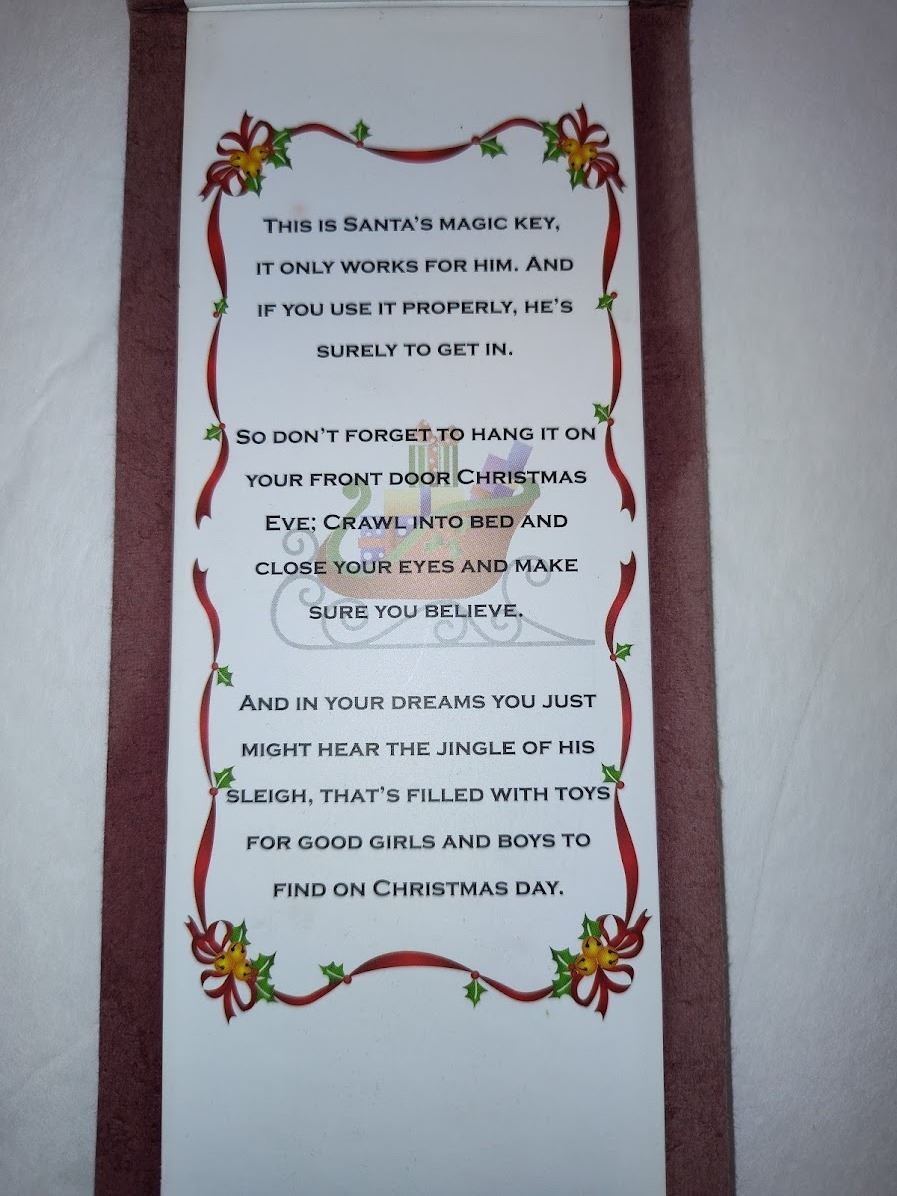 This is Santa's magic key,
it only works for him. And
if you use it properly, he's
surely to get in.
So don't forget to hang it on
your front door Christmas
Eve; Crawl into bed and
close your eyes and make
sure you believe.
And in your dreams you just
might hear the jingle of his
sleigh, that's filled with toys
for good girls and boys to
find on Christmas day.